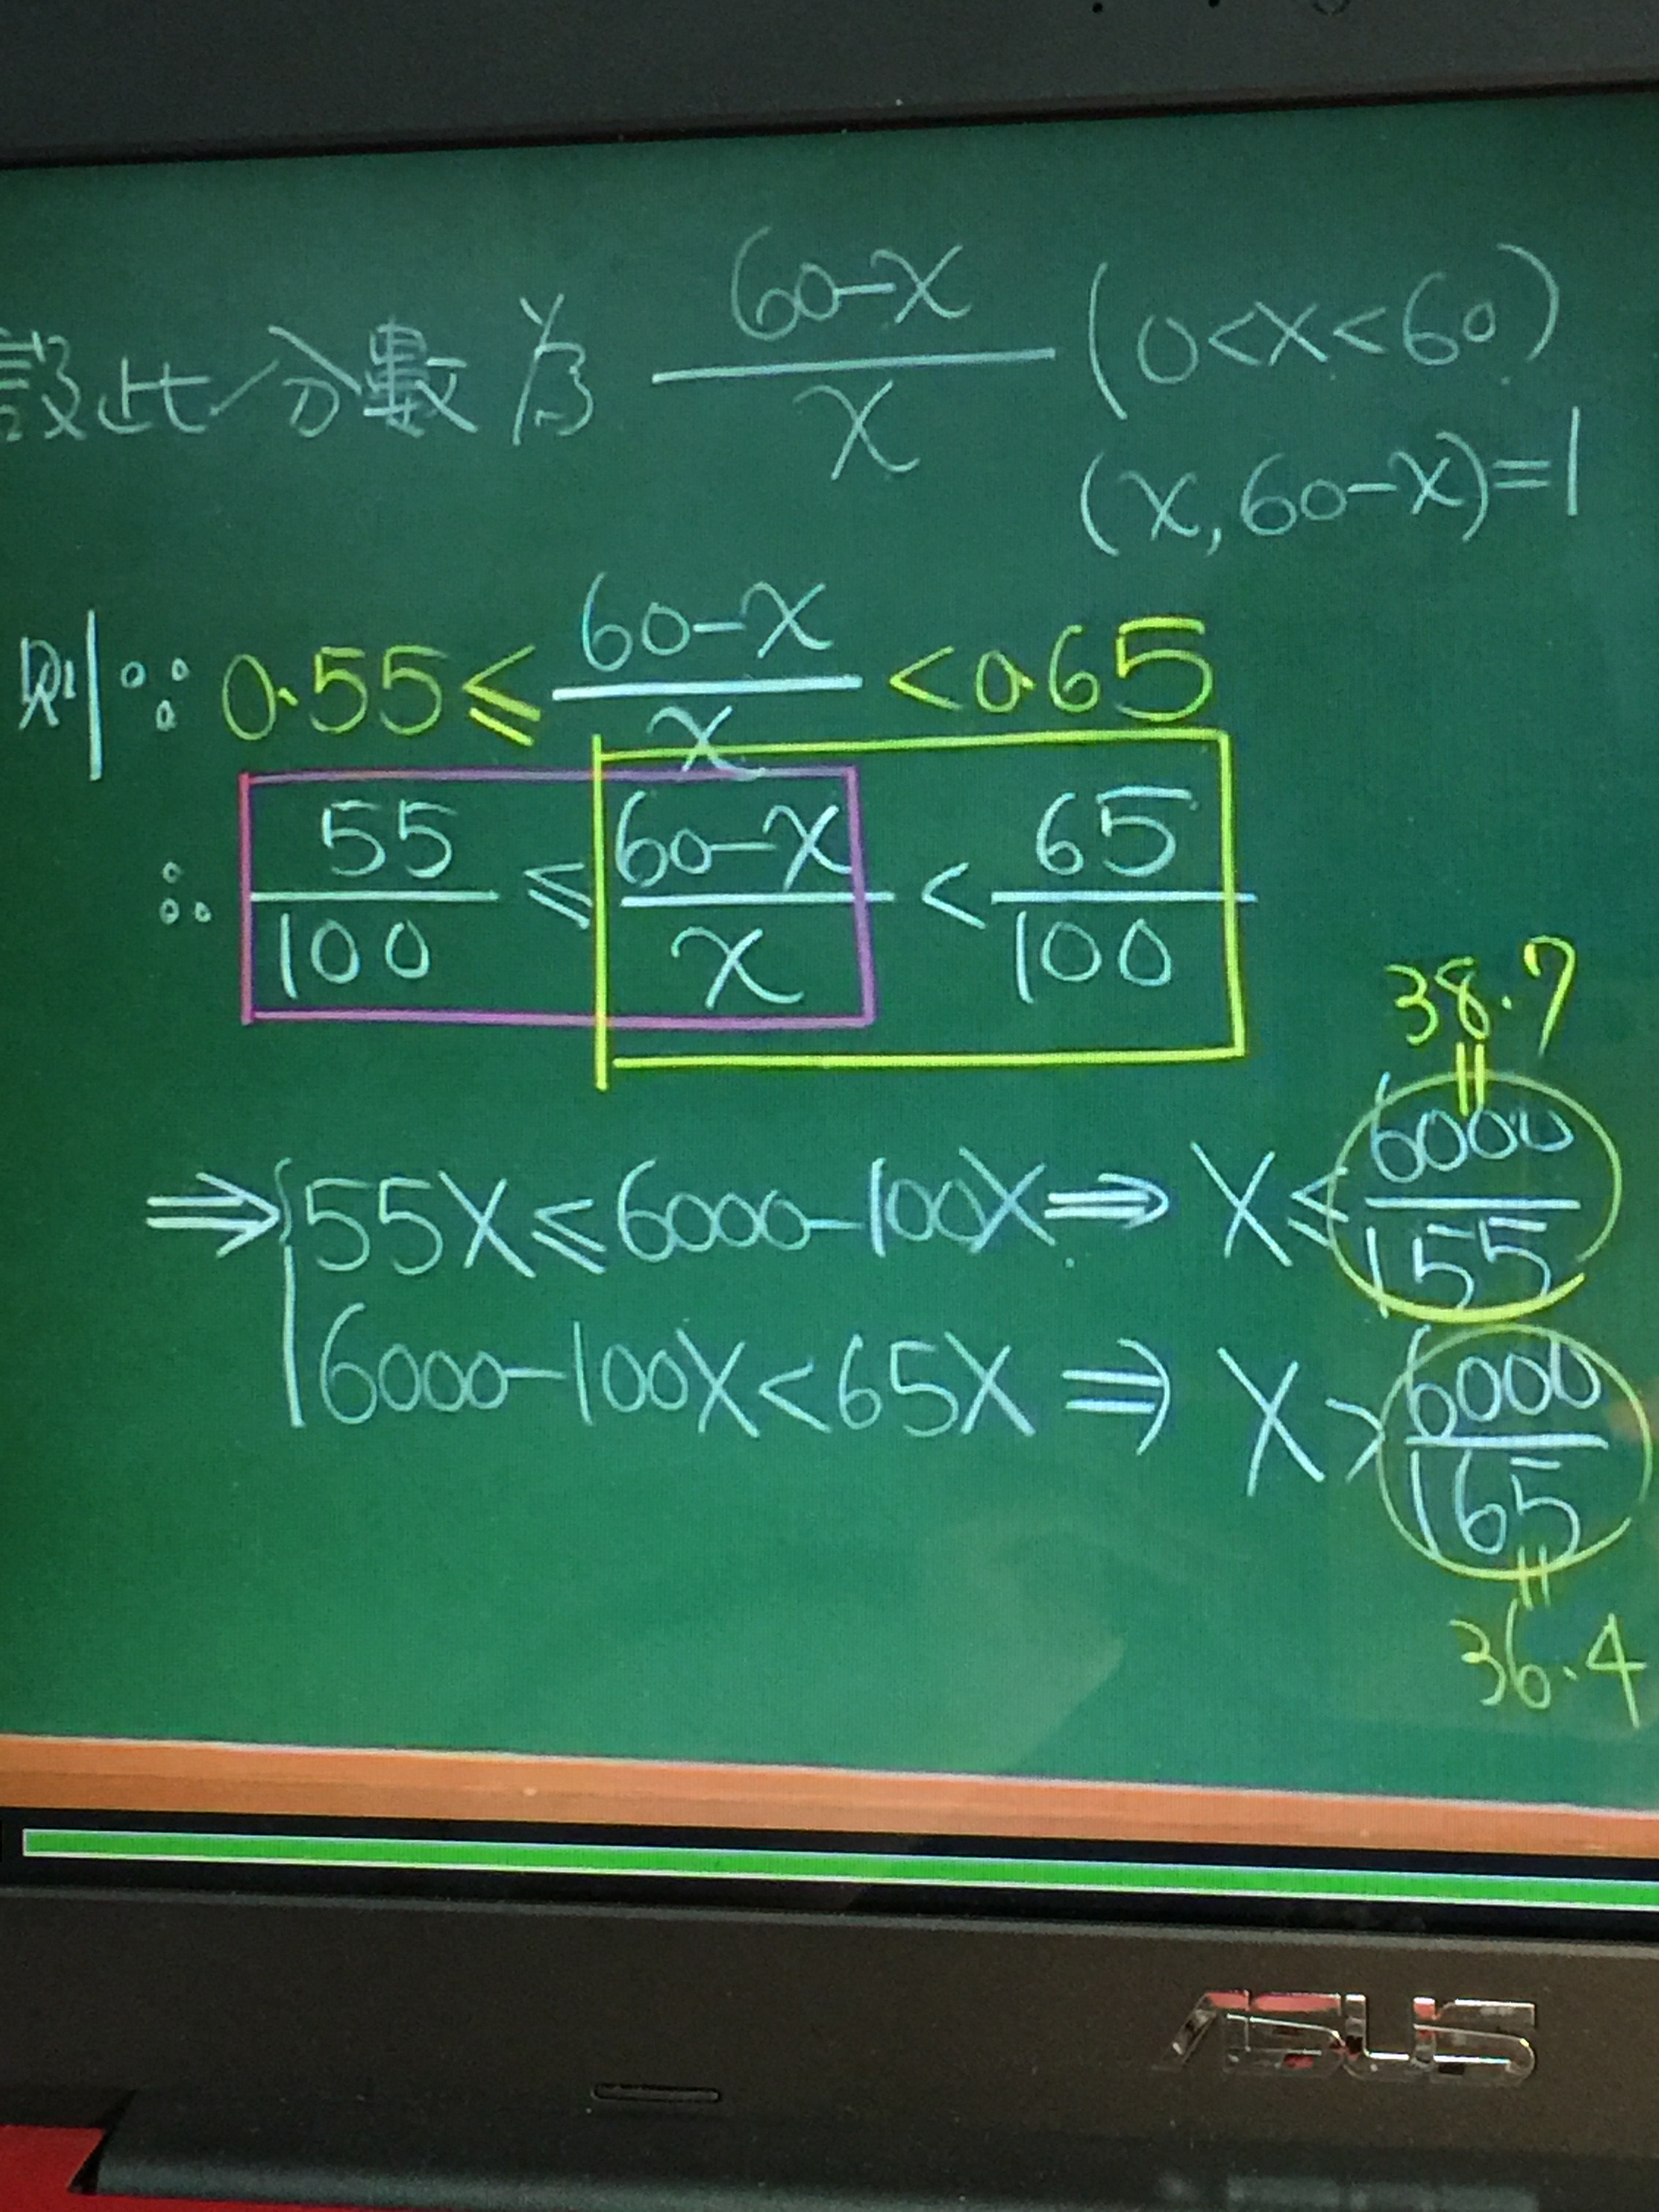 設此分數為 60-x/x (0<x<60)
(x,60-x)=1
則∵ 0.55≤ 60-x/x <0.65
∴ 55/100 ≤ 60-x/x < 65/100
38.7
=
⇒{55X≤6000-100X⇒ X≤ 6000/155
6000-100X<65X ⇒ X> 6000/165
=
36.4
ASUS